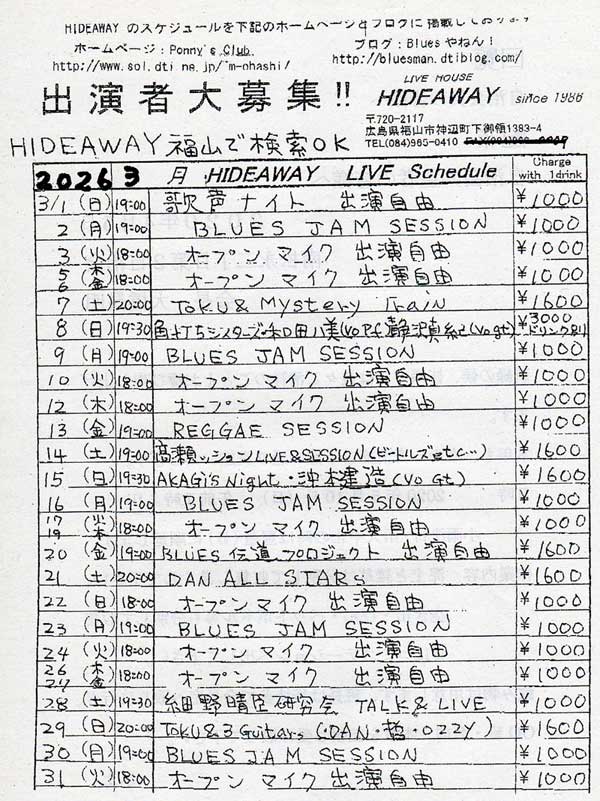 HIDEAWAY のスケジュールを下記のホームページとブログに掲載しております
ホームページ：Ponny's Club
ブログ：Bluesやねん！
http://www.sol.dti.ne.jp/~m-ohashi/
http://bluesman.dtiblog.com/
出演者大募集!!
LIVE HOUSE
HIDEAWAY since 1986
〒720-2117
広島県福山市神辺町下御領1383-4
TEL(084)965-0410
HIDEAWAY 福山で検索OK
2026 3 月 HIDEAWAY LIVE Schedule Charge with 1drink
3/1 (日) 19:00 歌声ナイト 出演自由 ¥1000
2 (月) 19:00 BLUES JAM SESSION ¥1000
3 (火) 18:00 オープンマイク 出演自由 ¥1000
5 (木) 6 (金) 18:00 オープンマイク 出演自由 ¥1000
7 (土) 20:00 TOKU & Mystery Train ¥1600
8 (日) 19:30 角打ちシスターズ・和田八美(Vo Pf) (Vo gt) ¥3000 ドリンク別
9 (月) 19:00 BLUES JAM SESSION ¥1000
10 (火) 18:00 オープンマイク 出演自由 ¥1000
12 (木) 18:00 オープンマイク 出演自由 ¥1000
13 (金) 19:00 REGGAE SESSION ¥1000
14 (土) 19:00 高瀬ッションLIVE&SESSION(ビートルズetc…) ¥1600
15 (日) 19:30 AKAGi's Night・沖本建造(Vo Gt) ¥1600
16 (月) 19:00 BLUES JAM SESSION ¥1000
17 (火) 19 (木) 18:00 オープンマイク 出演自由 ¥1000
20 (金) 19:00 BLUES伝道プロジェクト 出演自由 ¥1600
21 (土) 20:00 DAN ALL STARs ¥1600
22 (日) 18:00 オープンマイク 出演自由 ¥1000
23 (月) 19:00 BLUES JAM SESSION ¥1000
24 (火) 18:00 オープンマイク 出演自由 ¥1000
26 (木) 27 (金) 18:00 オープンマイク 出演自由 ¥1000
28 (土) 19:30 細野晴臣研究会 TALK & LIVE ¥1000
29 (日) 20:00 TOKU & 3 Guitars (DAN・哲・OZZY) ¥1600
30 (月) 19:00 BLUES JAM SESSION ¥1000
31 (火) 18:00 オープンマイク 出演自由 ¥1000